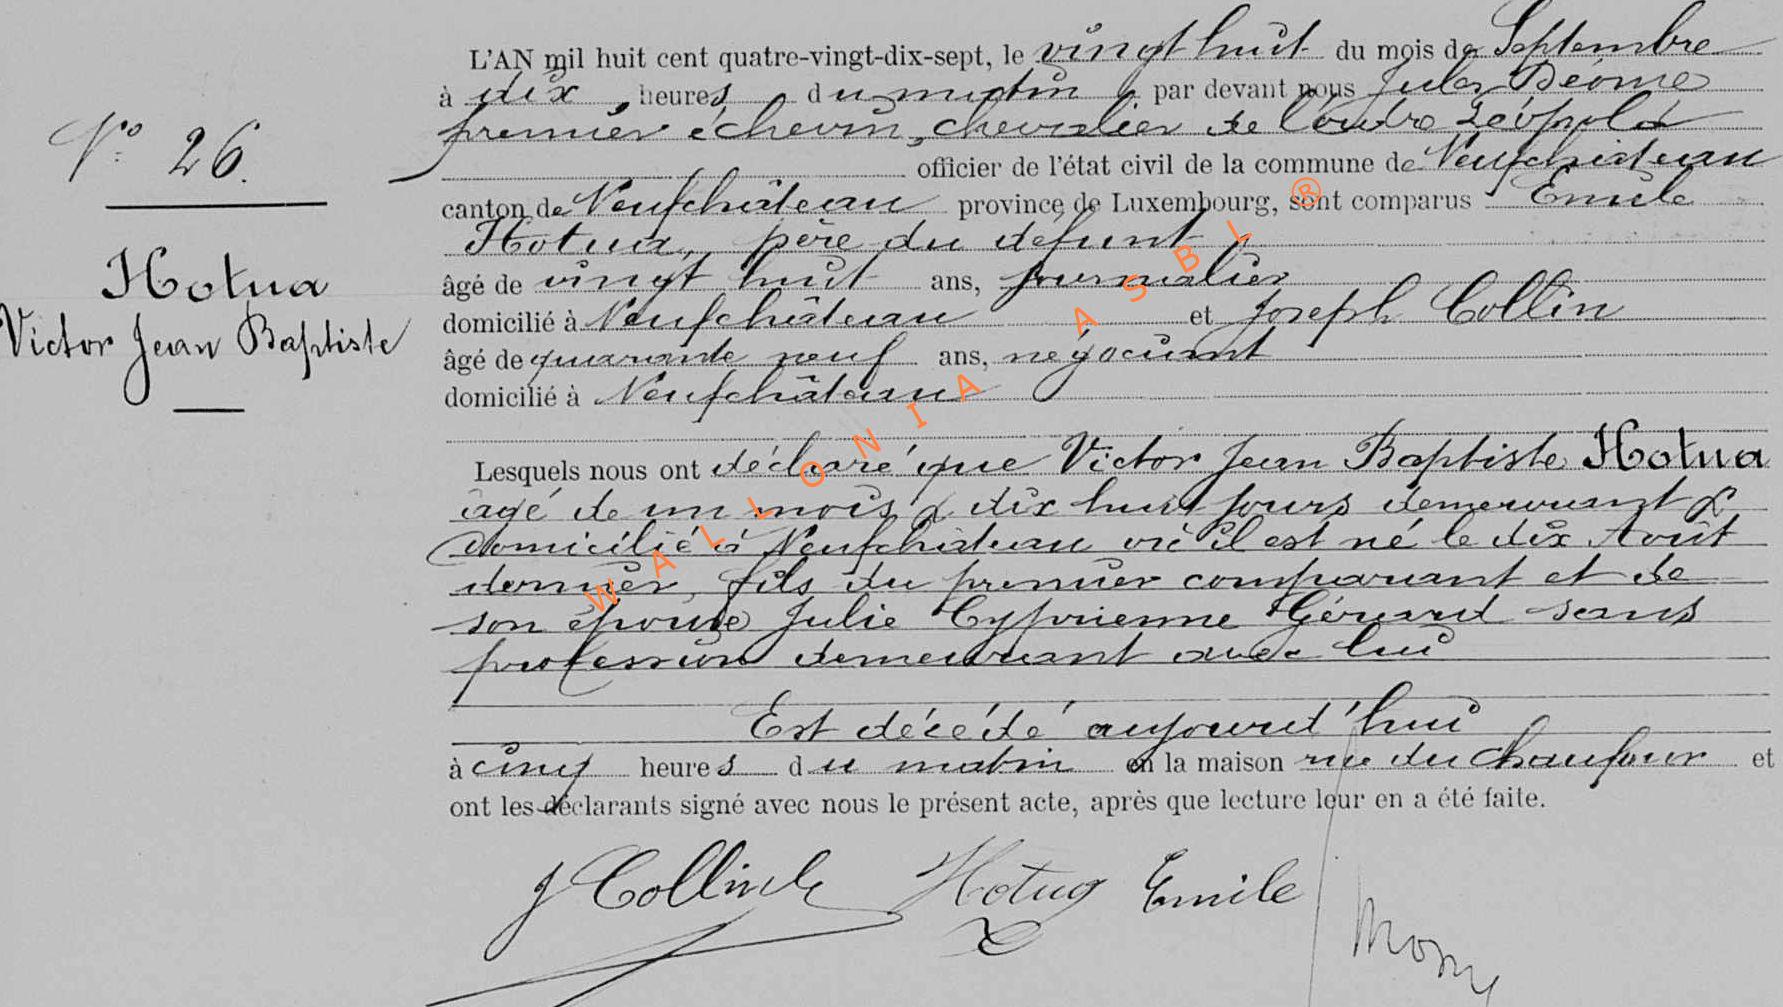 L'AN mil huit cent quatre-vingt-dix-sept, le vingt huit du mois de Septembre
à dix heures du matin par devant nous Jules
premier échevin, chevalier de l'ordre Léopold
N° 26.
officier de l'état civil de la commune de Neufchâteau
canton de Neufchâteau province de Luxembourg, sont comparus Emile
Hotua, père du défunt
âgé de vingt huit ans, journalier
Hotua
Victor Jean Baptiste
domicilié à Neufchâteau et Joseph Collin
âgé de quarante neuf ans, négociant
domicilié à Neufchâteau
Lesquels nous ont déclaré que Victor Jean Baptiste Hotua
âgé de un mois & dix huit jours demeurant &
domicilié à Neufchâteau où il est né le dix Août
dernier, fils du premier comparant et de
son épouse Julie Cyprienne Gérard sans
profession demeurant avec lui
Est décédé aujourd'hui
à cinq heures du matin en la maison rue du Chaufour et
ont les déclarants signé avec nous le présent acte, après que lecture leur en a été faite.
J Collin Hotua Emile
WALLONIA ASBL ®